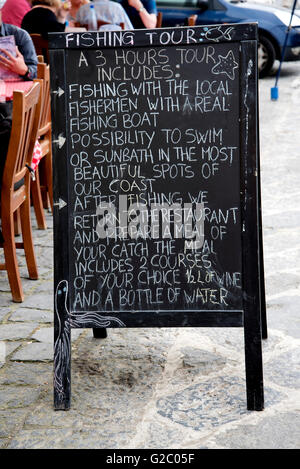 FISHING TOUR
A 3 HOURS TOUR
INCLUDES:
FISHING WITH THE LOCAL
FISHERMEN WITH A REAL
FISHING BOAT
POSSIBILITY TO SWIM
OR SUNBATH IN THE MOST
BEAUTIFUL SPOTS OF
OUR COAST
AFTER FISHING WE
RETURN TO THE RESTAURANT
AND PREPARE A MEAL OF
YOUR CATCH THE MEAL
INCLUDES 2 COURSES
OF YOUR CHOICE 1/2 L OF WINE
AND A BOTTLE OF WATER
alamy
Image ID: G2C05F
www.alamy.com